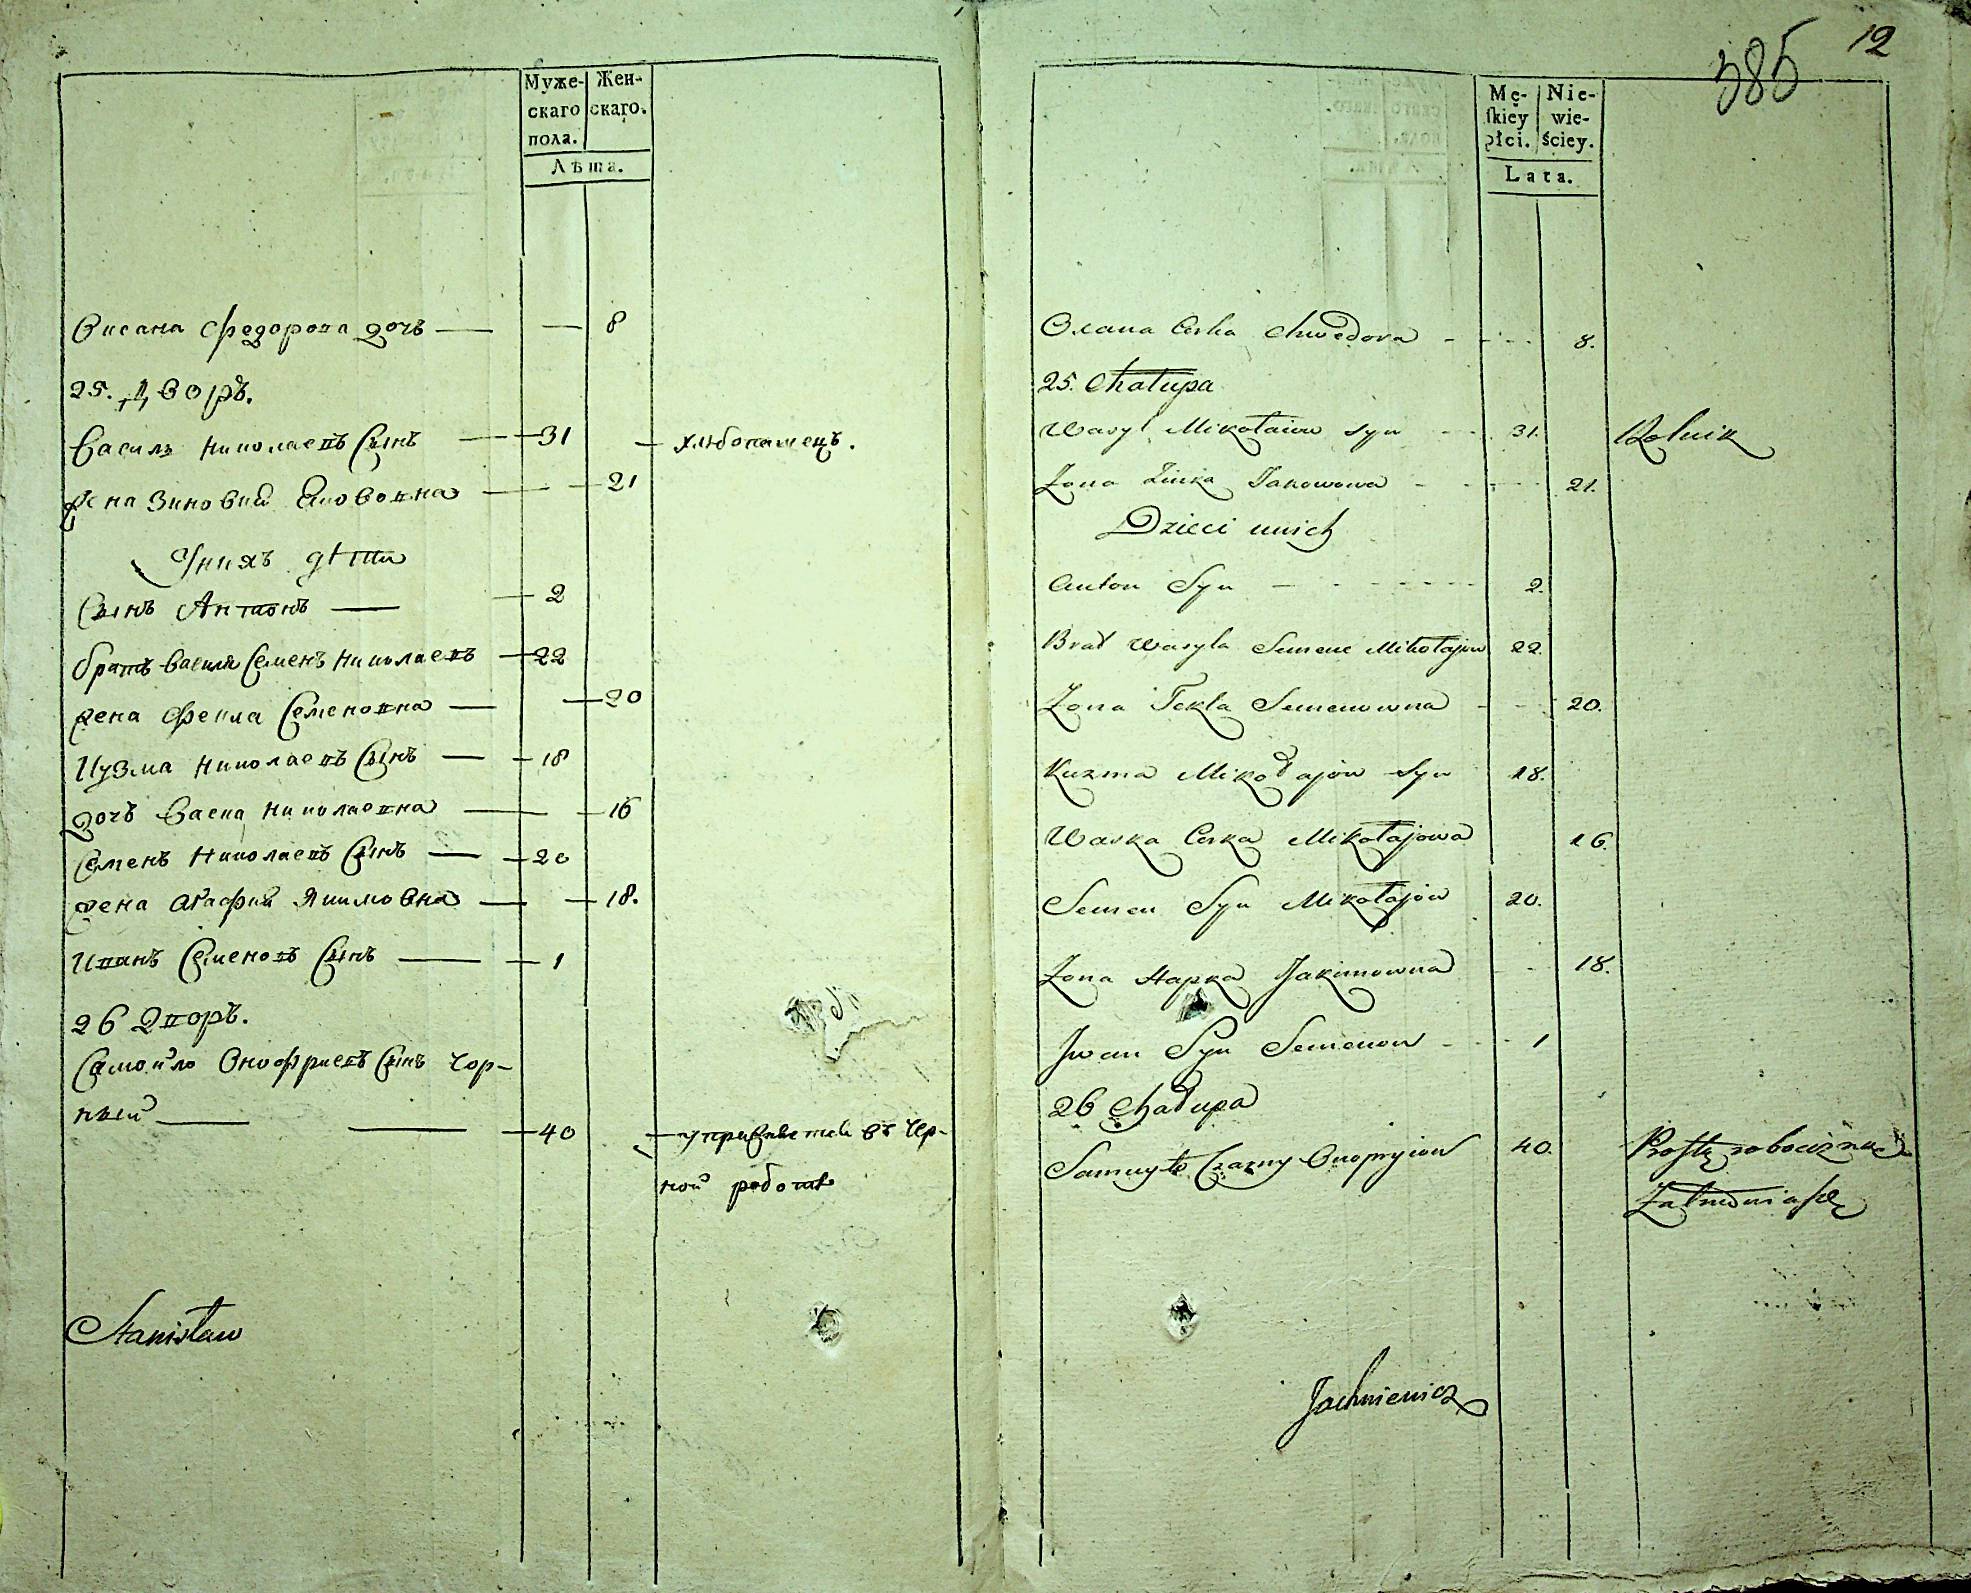 Муже-
скаго
пола.
Жен-
скаго.
Лѣта.
Оксана Федорова дочь — — 8
25. Дворъ.
Василь Николаевъ Сынъ — 31 — хлѣбопашецъ.
жена Зиновий Якововна — 21
У нихъ дѣти
Сынъ Антонъ — 2
братъ Василя Семенъ Николаевъ — 22
жена Фекла Семеновна — 20
Кузма Николаевъ Сынъ — 18
дочь Васка Николаевна — 16
Семенъ Николаевъ Сынъ — 20
жена Агафия Якимовна — 18.
Иванъ Семеновъ Сынъ — 1
26 Дворъ.
Самойло Онофриевъ Сынъ Чор-
ный — 40 — упражняется въ чер-
ной работѣ
Stanisław
385
12
Mę-
ſkiey
płci.
Nie-
wie-
ściey.
Lata.
Oxana Corka Chwedora 8.
25. Chałupa
Wasyl Mikołaiow Syn 31. Rolnik
Żona Zinka Jakowowa 21.
Dzieci unich
Anton Syn 2.
Brat Wasyla Semene Mikołajow 22.
Żona Tekla Semenowna 20.
Kuzma Mikołajow Syn 18.
Waska Corka Mikołajowa 16.
Semen Syn Mikołajow 20.
Żona Hapka Jakimowna 18.
Jwan Syn Semenow 1
26 Chałupa
Samuyło Czarny Onopryiow 40. Prostą robocizną
Zatrudnia się
Jachniewicz